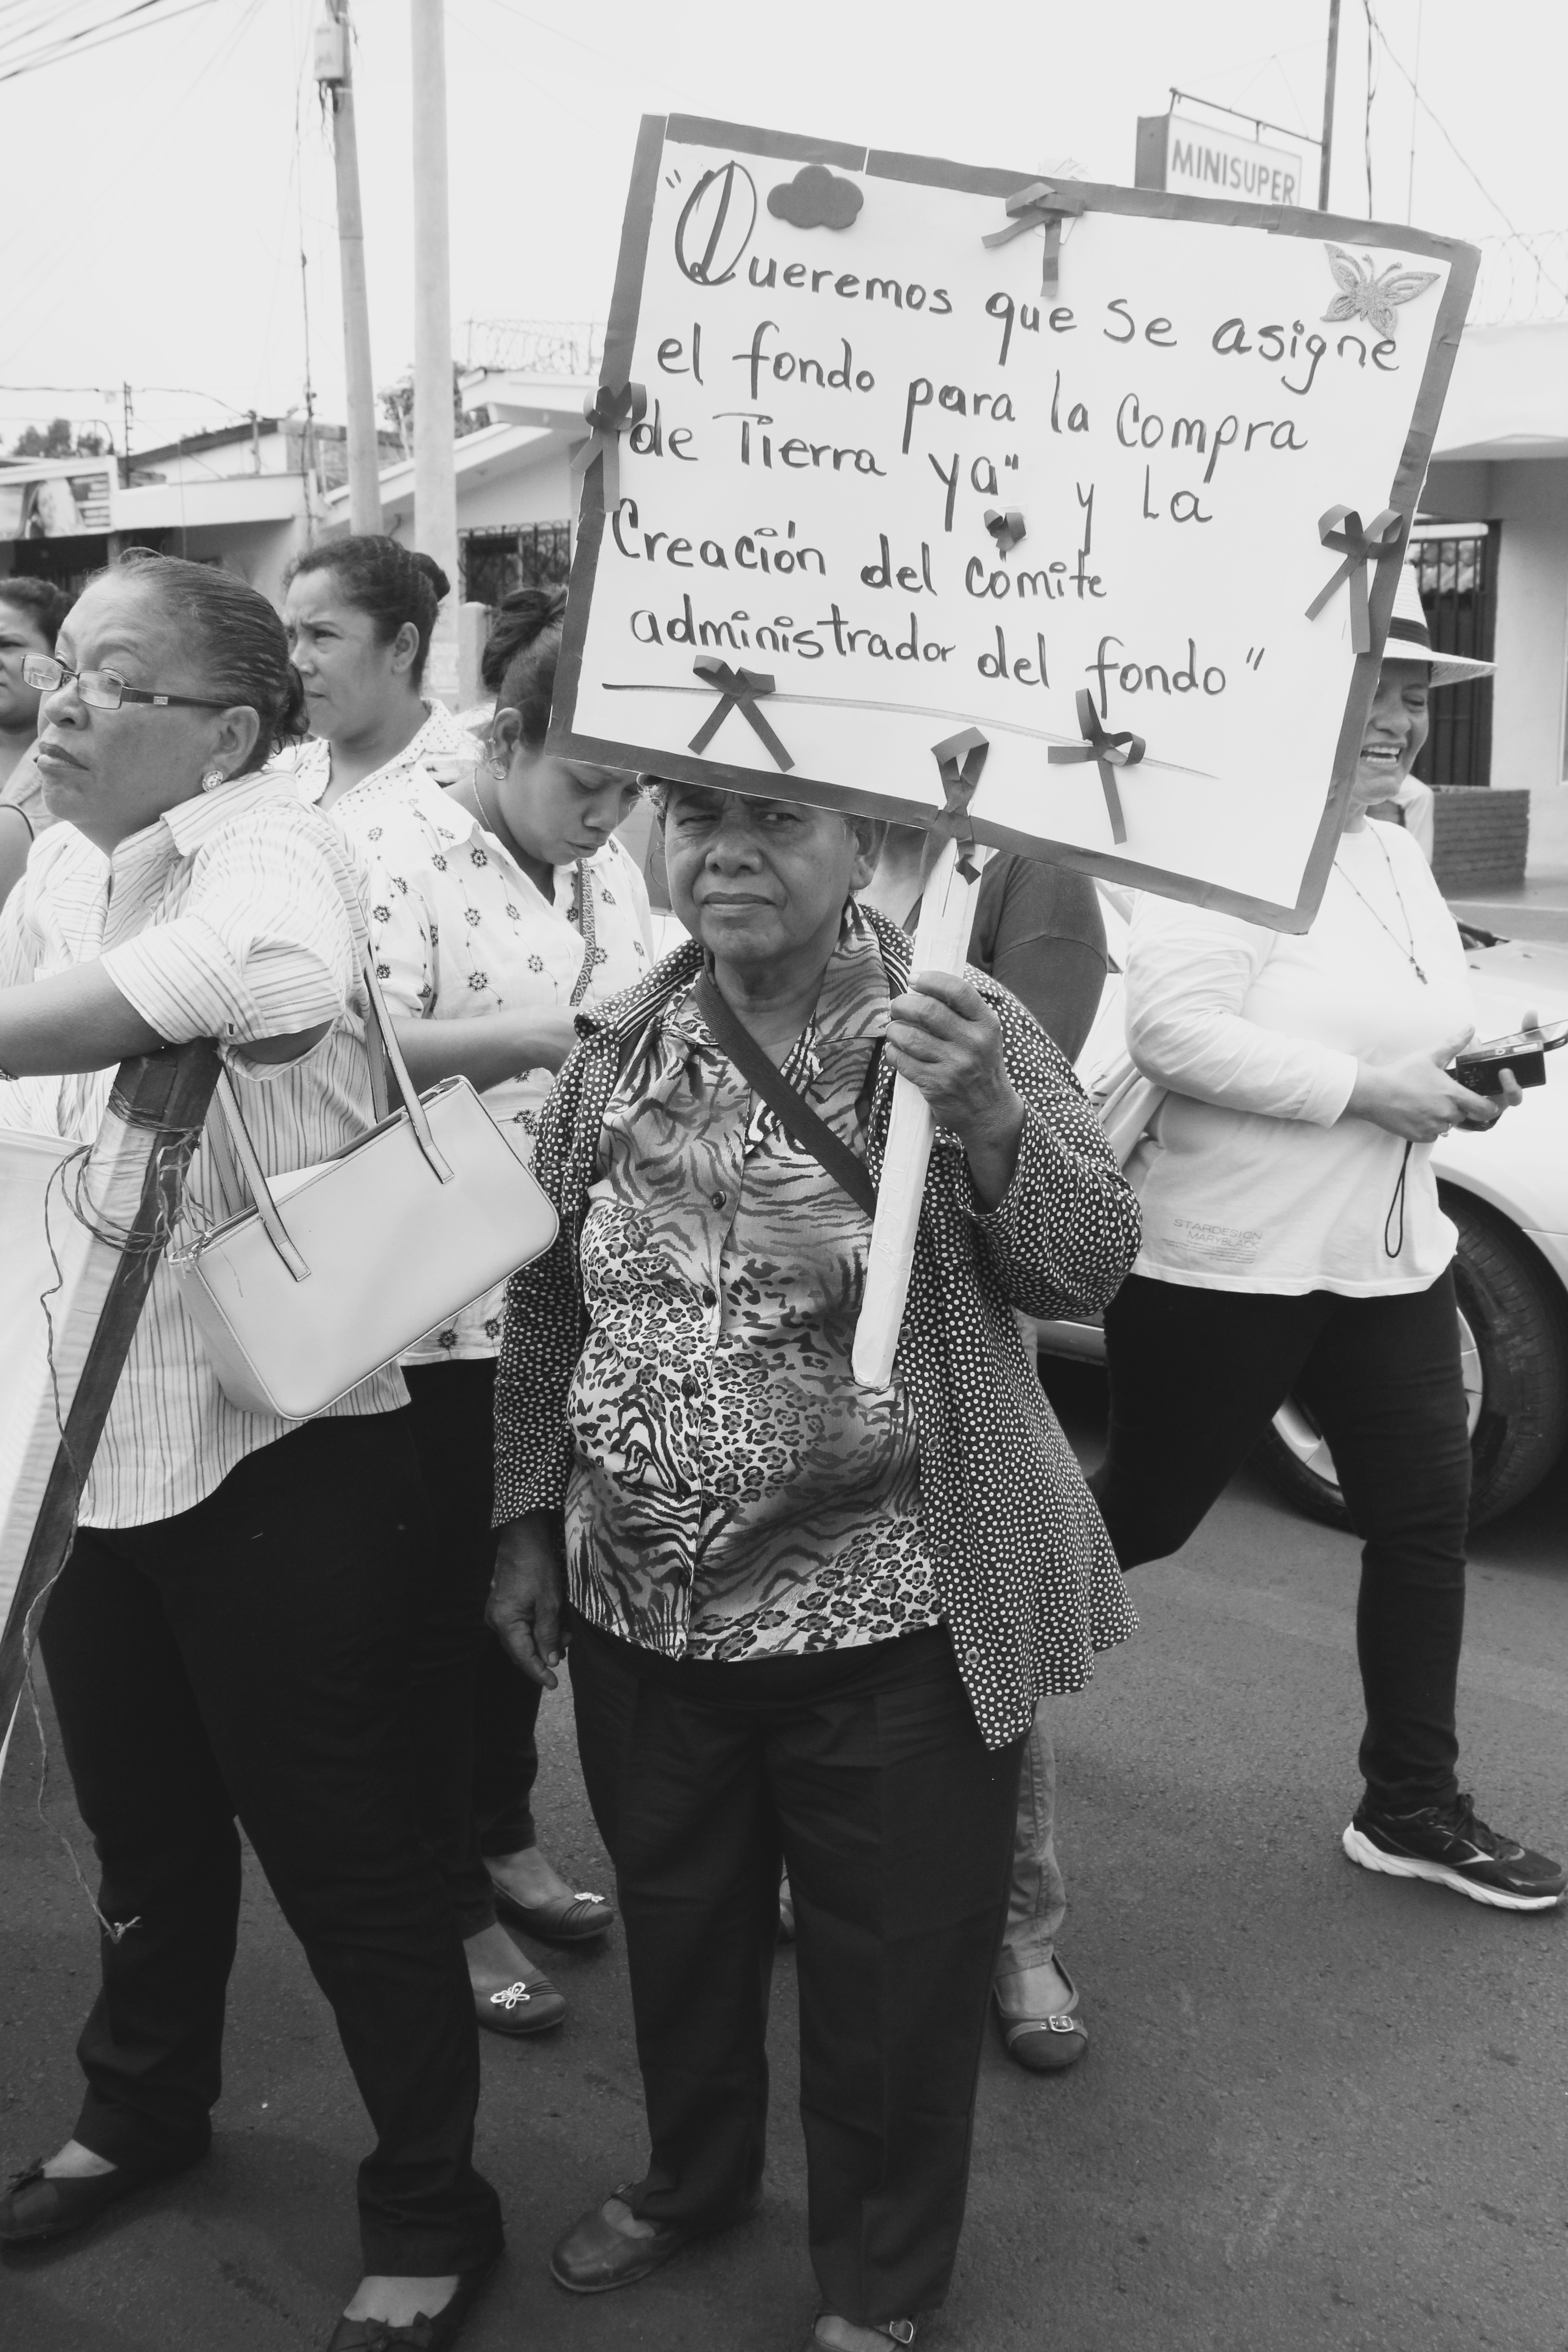 MINISUPER
"Queremos que se asigne
el fondo para la Compra
de Tierra ya" y la
Creación del comite
administrador del fondo"
STARDESIGN
MARYBLACK